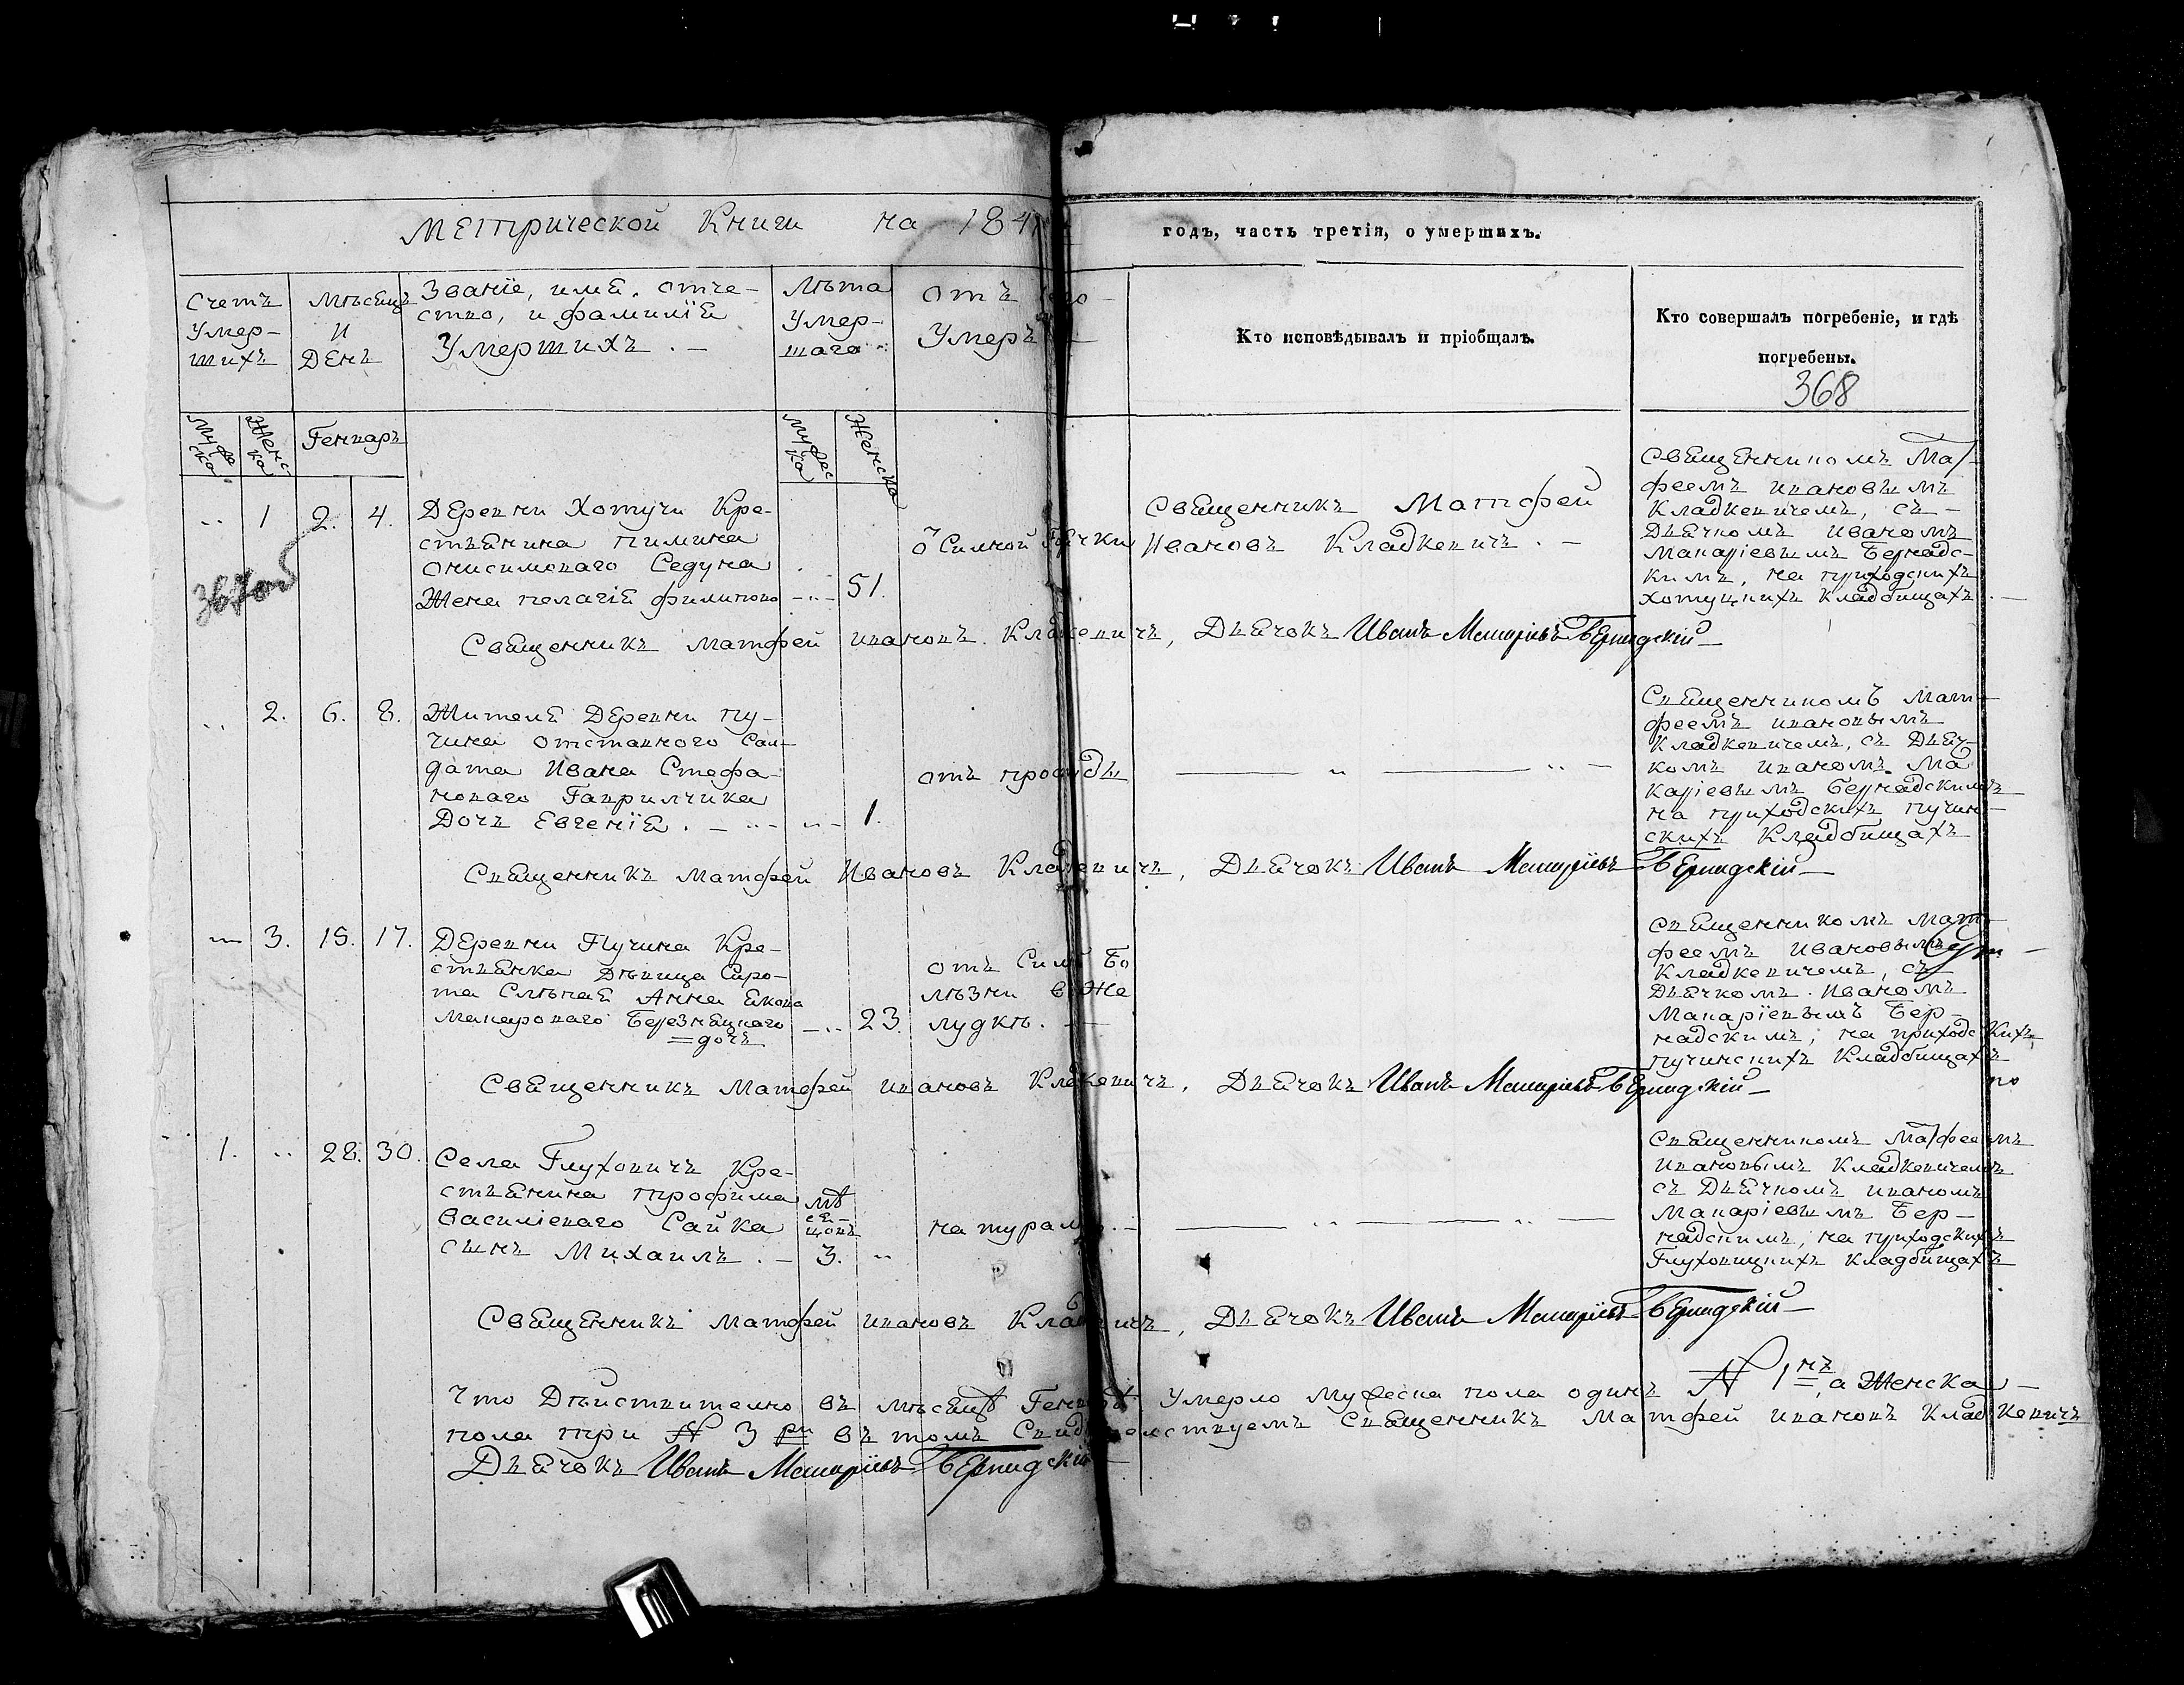 Метрической Книги на 184
годъ, часть третія, о умершихъ.
Счетъ
Умер-
шихъ
Мѣсяцъ
и
Денъ
Званіе, имя, отче-
ство, и фамилія
Умершихъ . —
Лѣта
Умер-
шаго
отъ чего
Умеръ
Кто исповѣдывалъ и пріобщалъ.
Кто совершалъ погребеніе, и гдѣ
погребены.
368
Мужес
ка
Женс-
ка
Генварь
Мужес
ка
Женска
1 2. 4.
Деревни Хотучи Кре-
стьянина пимина
онисимоваго Седуна
Жена пелагія филипова 51.
Ѿ Силной Горячки
Священникъ Матфей
Ивановъ Кладкевичъ . —
Священникомъ Мат-
феемъ Ивановымъ
Кладкевичемъ, съ -
Дьячкомъ Иваномъ
Макаріевымъ Бернадс-
кимъ, на приходскихъ
Хотуцкихъ Кладбищахъ . —
Священникъ Матфей Ивановъ Кладкевичъ, Дьячокъ Иванъ Макаріевъ Бернадскій —
2. 6. 8.
Жителя Деревни Пу-
чина отставного Сал-
дата Ивана Стефа-
новаго Гаврилчика
Дочь Евгенія . — 1.
отъ простуды
Священникомъ Мат-
феемъ Ивановымъ
Кладкевичемъ, съ Дьяч-
комъ Иваномъ Ма
каріевымъ Бернадскимъ
на приходскихъ пучин-
скихъ Кладбищахъ
Священникъ Матфей Ивановъ Кладкевичъ, Дьячокъ Иванъ Макаріевъ Бернадскій —
3. 15. 17.
Деревни Пучина Кре-
стьянка Дѣвица Сиро-
та Слѣпая Анна Якова
Макароваго Березнецкаго 23.
= дочь
отъ Силн Бо
лѣзни в Же
лудкѣ. —
Священникомъ Мат-
феемъ Ивановымъ
Кладкевичемъ, съ
Дьячкомъ Иваномъ
Макаріевымъ Бер-
надскимъ, на приходскихъ
пучинскихъ Кладбищахъ
Священникъ Матфей Ивановъ Кладкевичъ, Дьячокъ Иванъ Макаріевъ Бернадскій —
по
1. 28. 30.
Села Глуховичъ Кре-
стьянина Трофима
Василіеваго Сайка
сынъ Михаилъ . —
мѣ
ся-
цовъ
3.
натурално. —
Священникомъ Матфеемъ
Ивановымъ Кладкевичемъ
съ Дьячкомъ Иваномъ
Макаріевымъ Бер-
надскимъ, на приходскихъ
Глуховицкихъ Кладбищахъ
Священникъ Матфей Ивановъ Кладкевичъ, Дьячокъ Иванъ Макаріевъ Бернадскій —
Что Дѣйствително въ мѣсяцѣ Генварѣ Умерло Мужеска пола одинъ № 1нъ, а Женска —
пола три № 3 ри въ томъ Свидѣтелствуемъ Священникъ Матфей Ивановъ Кладкевичъ
Дьячокъ Иванъ Макаріевъ Бернадскій —